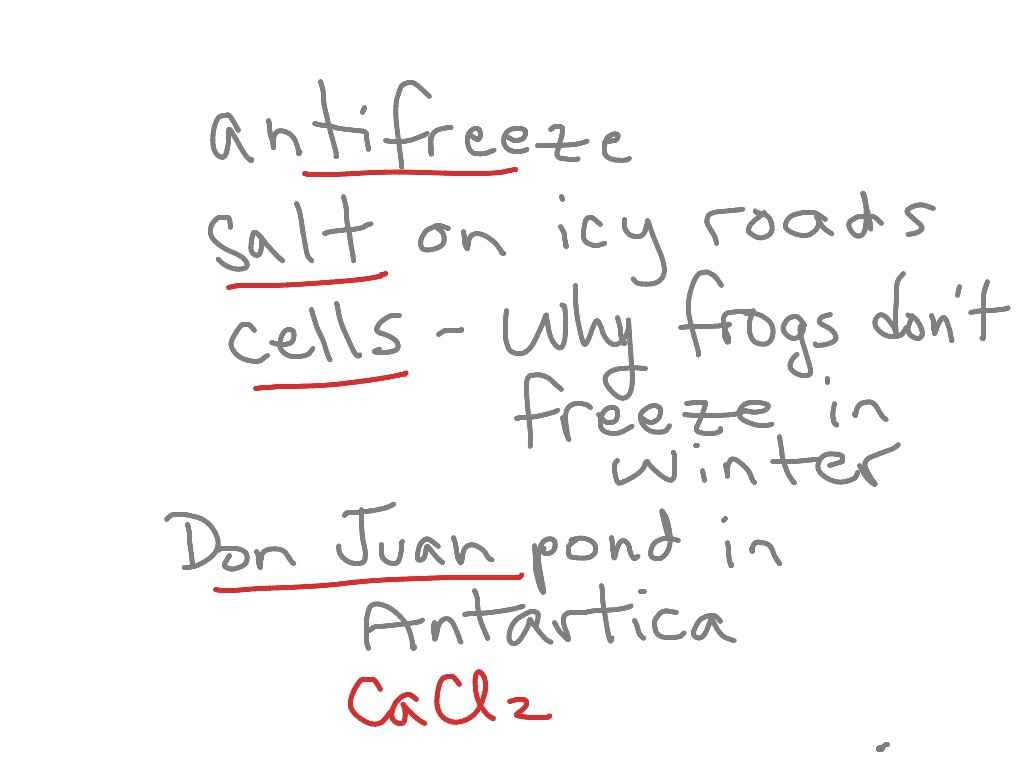 antifreeze
salt on icy roads
cells - Why frogs don't
freeze in
winter
Don Juan pond in
Antartica
CaCl2